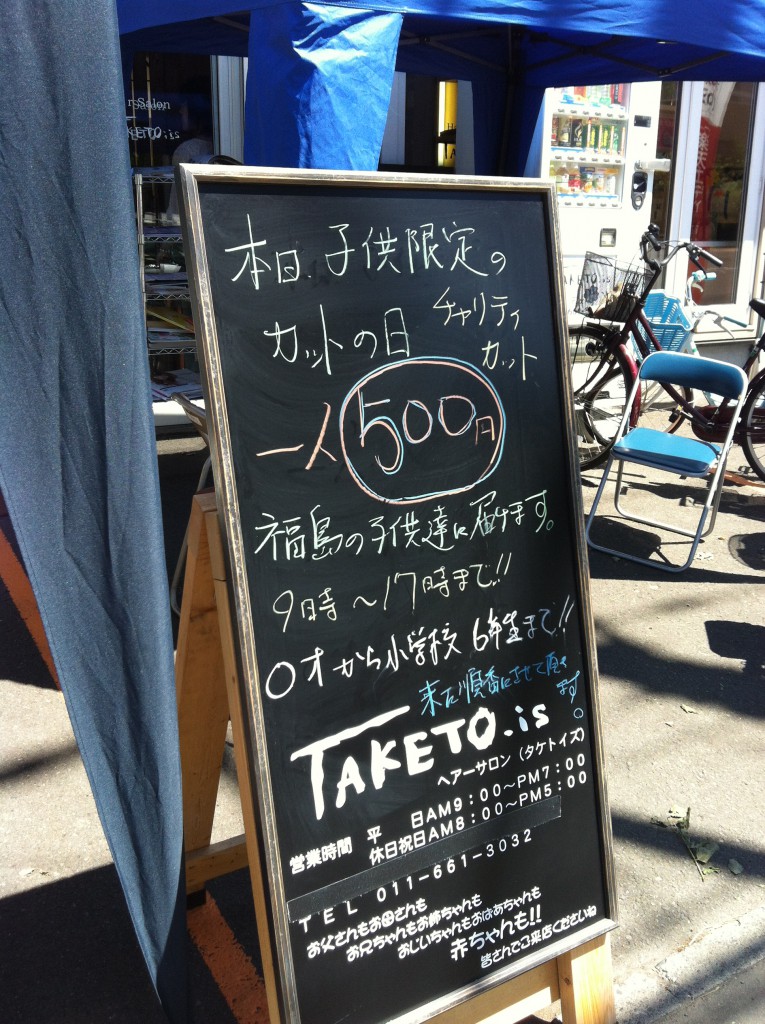 rSalon
AKETO.is
本日 子供限定の
カットの日
チャリティ
カット
一人 500円
福島の子供達に届けます。
9時〜17時まで!!
0才から小学校6年生まで!!
来た順番にさせて頂き
ます。
TAKETO.is
ヘアーサロン(タケトイズ)
営業時間 平 日AM9:00〜PM7:00
休日祝日AM8:00〜PM5:00
TEL 011-661-3032
お父さんもお母さんも
お兄ちゃんもお姉ちゃんも
おじいちゃんもおばあちゃんも
赤ちゃんも!!
皆さんでご来店くださいね